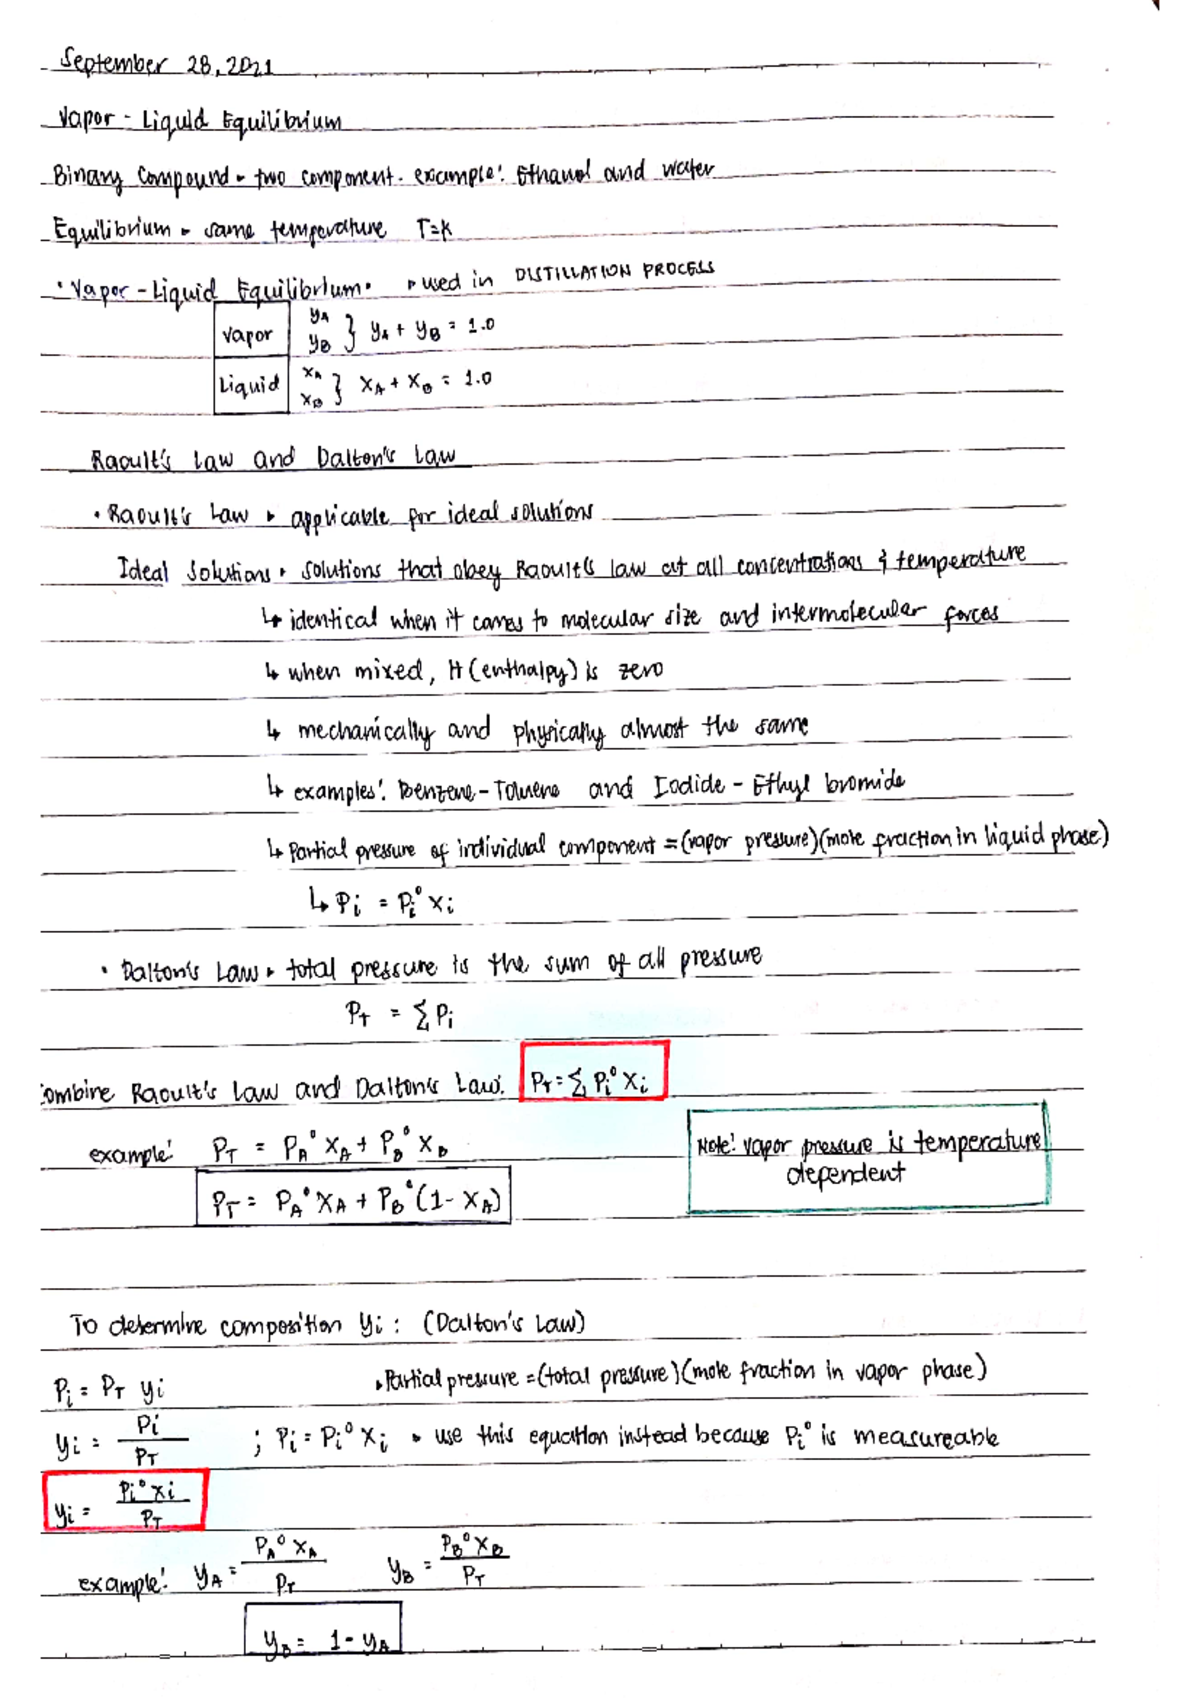 September 28, 2021
Vapor - Liquid Equilibrium
Binary Compound - two component. example: Ethanol and water
Equilibrium - same temperature T=K
• Vapor - Liquid Equilibrium • used in DISTILLATION PROCESS
Vapor yA yB } yA + yB = 1.0
Liquid xA xB } xA + xB = 1.0
Raoult's Law and Dalton's Law
• Raoult's Law ▸ applicable for ideal solutions
Ideal Solutions ▸ solutions that obey Raoult's law at all concentrations & temperature
↳ identical when it comes to molecular size and intermolecular forces
↳ when mixed, H (enthalpy) is zero
↳ mechanically and physically almost the same
↳ examples: Benzene - Toluene and Iodide - Ethyl bromide
↳ Partial pressure of individual component = (vapor pressure)(mole fraction in liquid phase)
↳ Pi = Pi° xi
• Dalton's Law ▸ total pressure is the sum of all pressure
PT = Σ Pi
ombine Raoult's Law and Dalton's Law: PT = Σ Pi° xi
example: PT = PA° xA + PB° xB
Note: vapor pressure is temperature
dependent
PT = PA° xA + PB° (1 - xA)
To determine composition yi : (Dalton's Law)
Pi = PT yi ▸ Partial pressure = (total pressure)(mole fraction in vapor phase)
yi = Pi / PT ; Pi = Pi° xi ▸ use this equation instead because Pi° is measureable
yi = Pi° xi / PT
example: yA = PA° xA / PT yB = PB° xB / PT
yB = 1 - yA